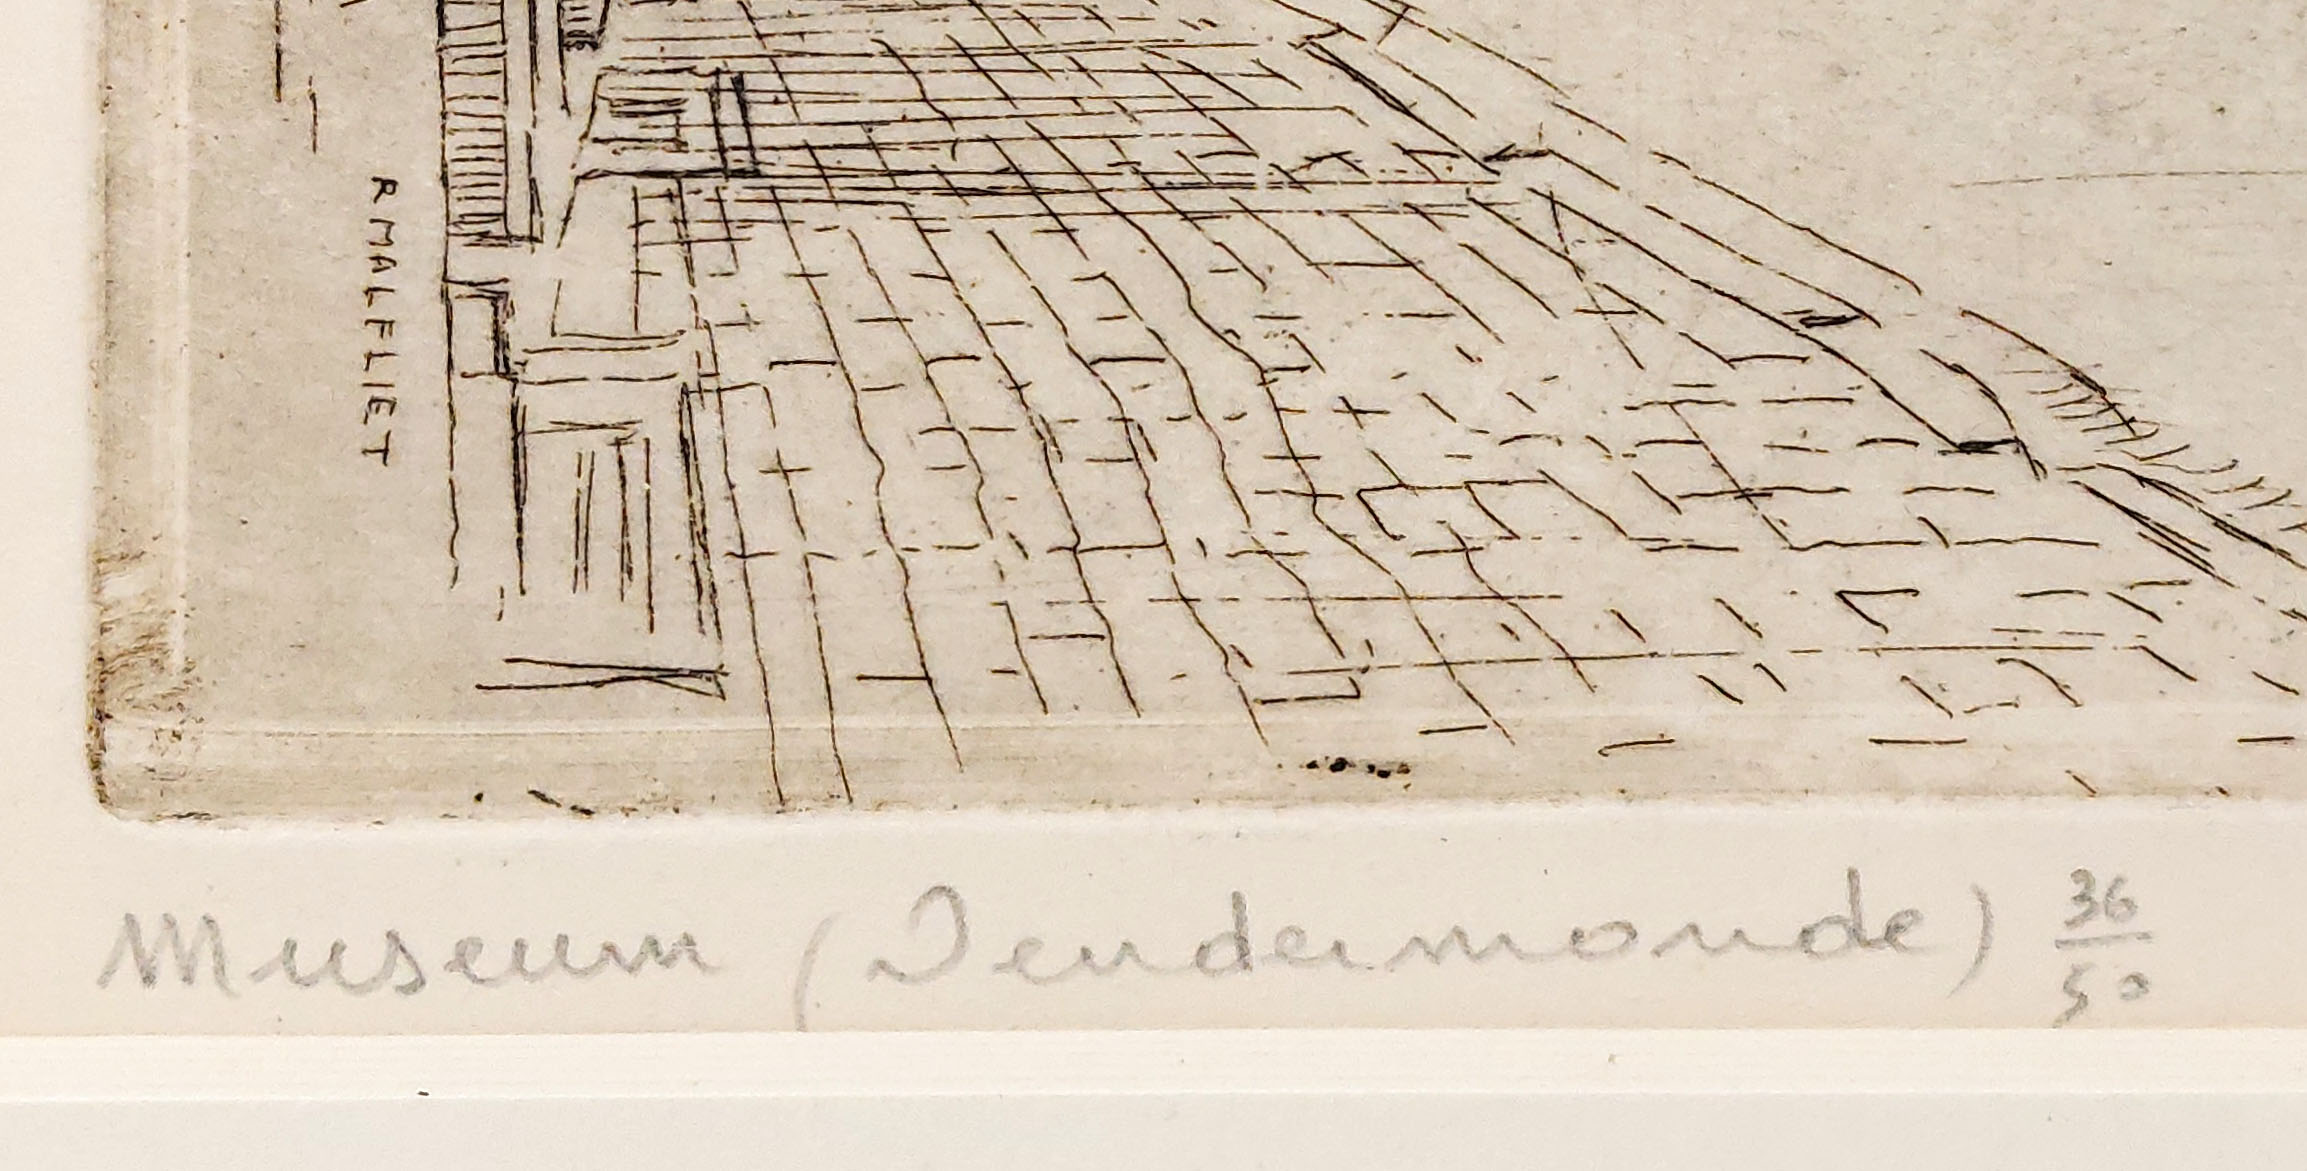 R MALFLIET
Museum (Dendermonde) 36/50